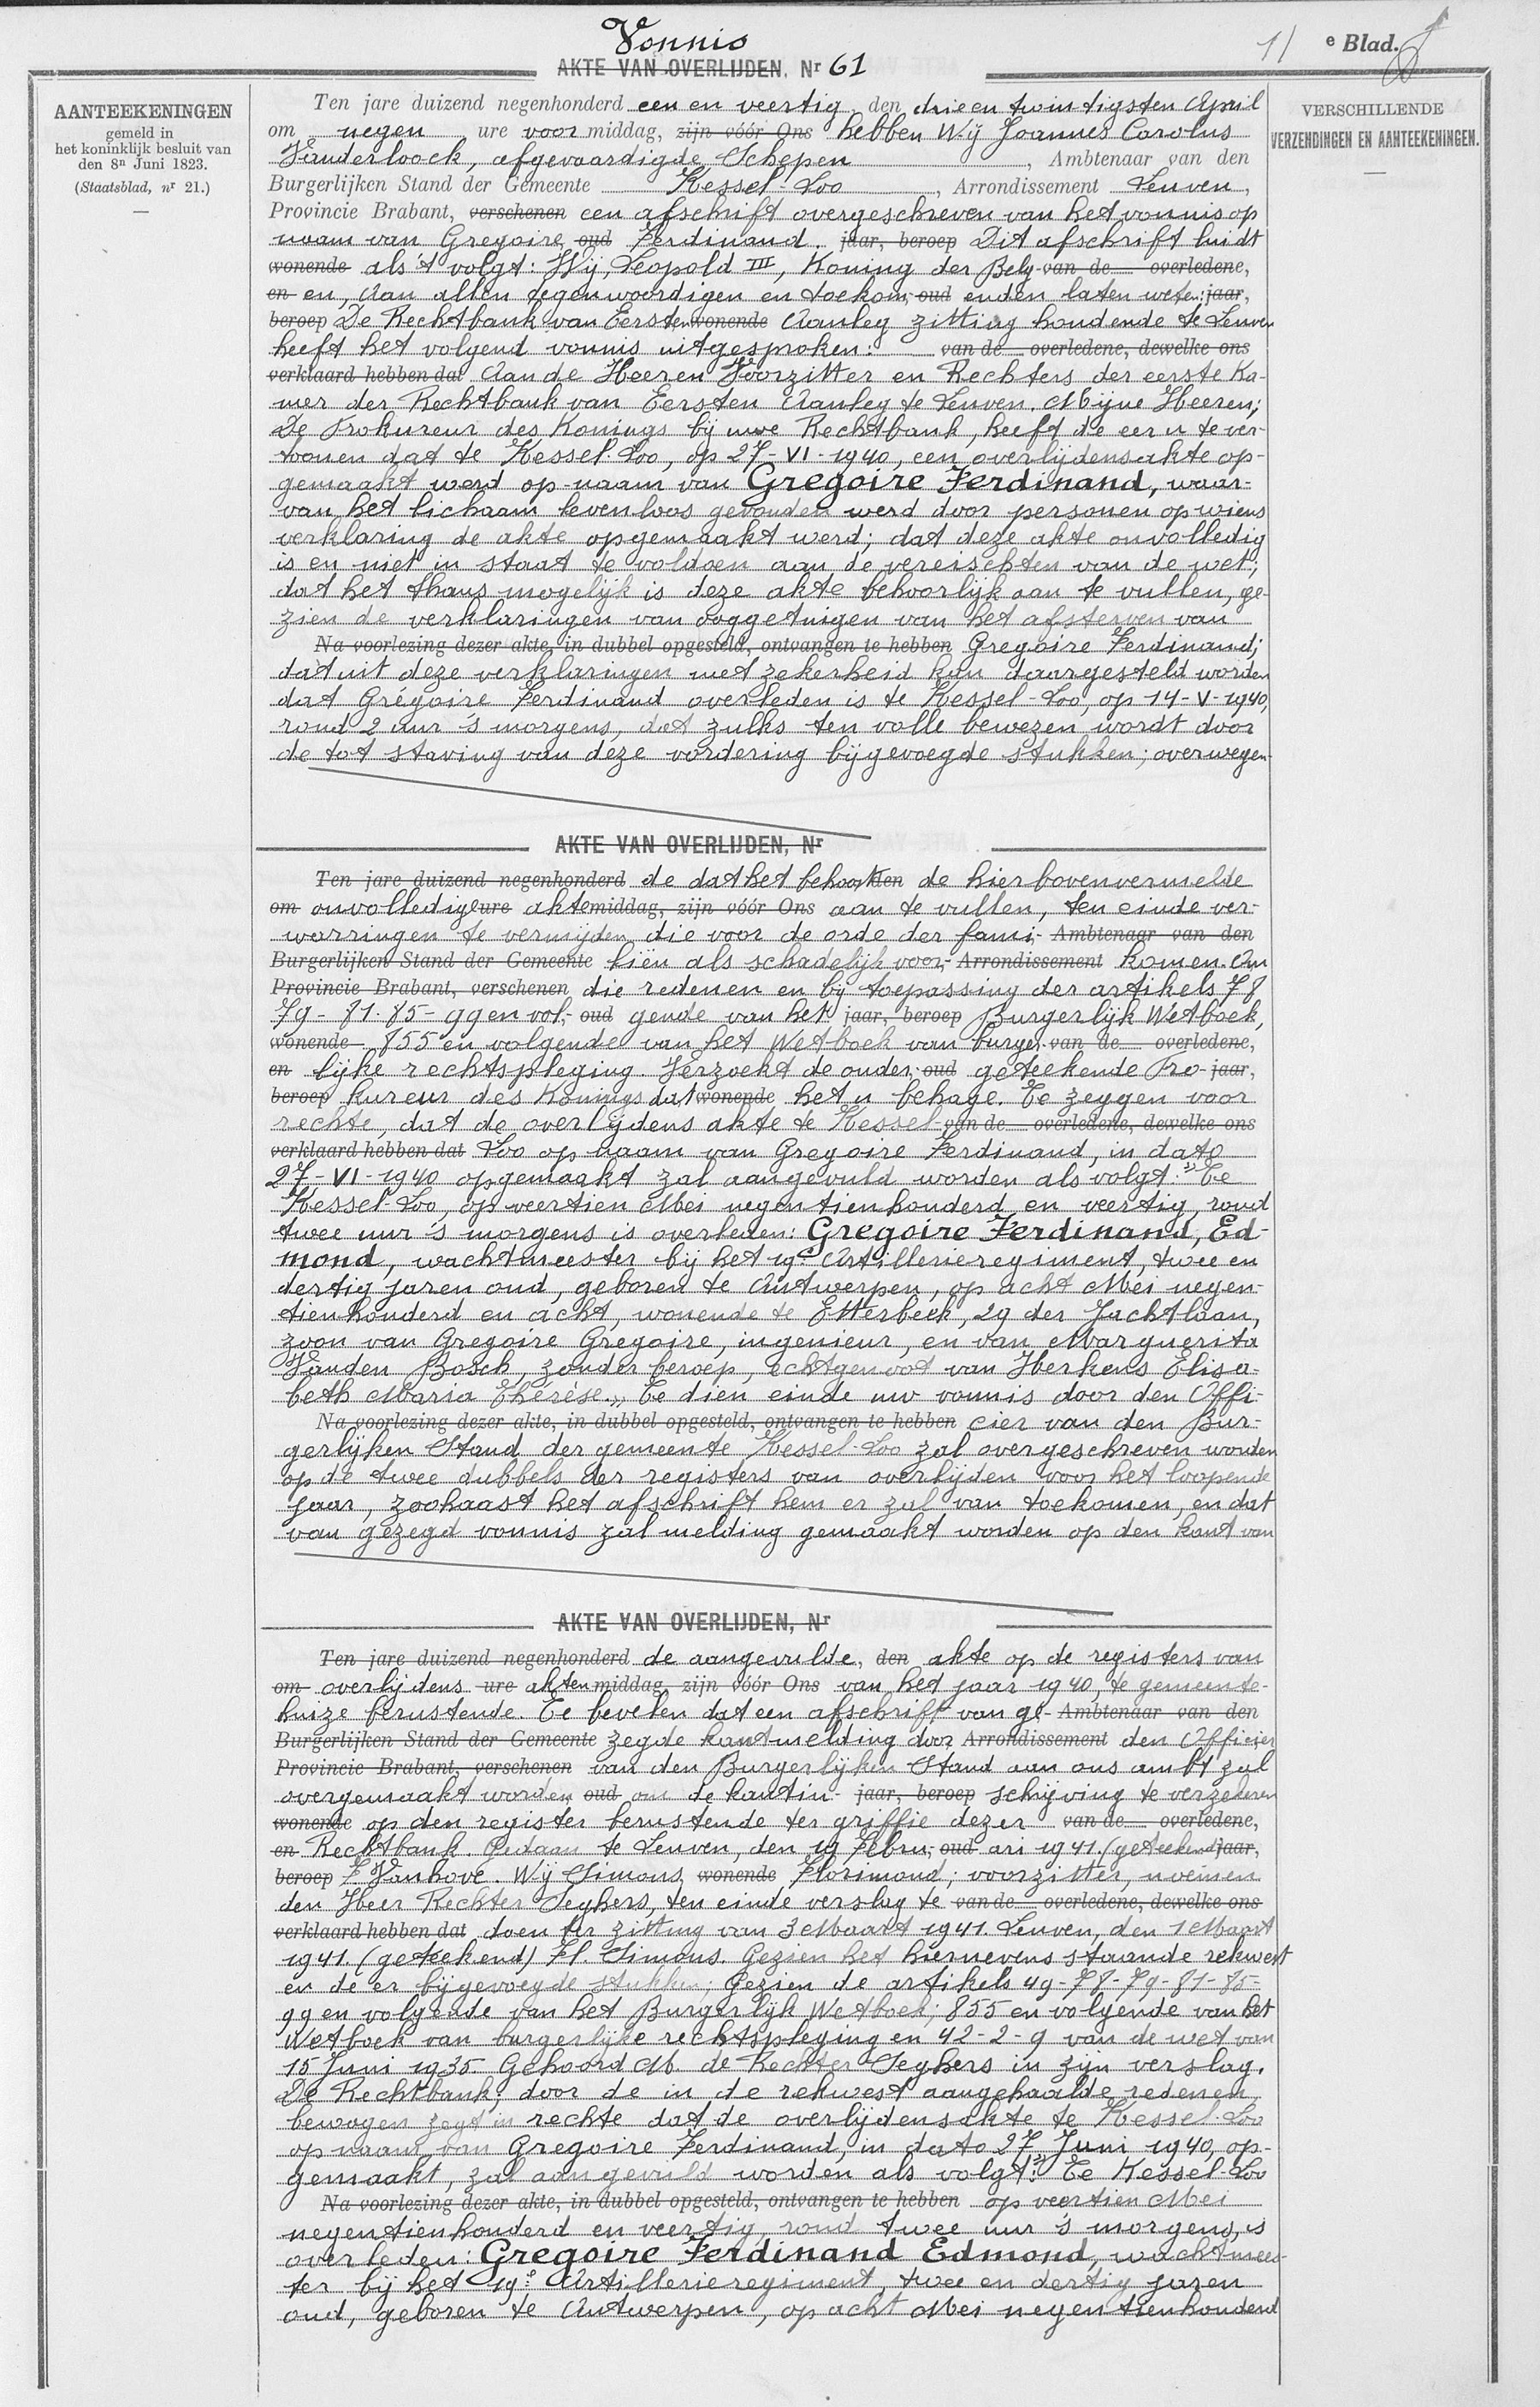 Vonnis
11 e Blad.
AKTE VAN OVERLIJDEN, Nr 61
AANTEEKENINGEN
gemeld in
het koninklijk besluit van
den 8n Juni 1823.
(Staatsblad, nr 21.)
VERSCHILLENDE
VERZENDINGEN EN AANTEEKENINGEN.
Ten jare duizend negenhonderd een en veertig, den drie en twintigsten April
om negen ure voor middag, zijn vóór Ons hebben Wij Joannes Carolus
Vanderloock, afgevaardigde Schepen, Ambtenaar van den
Burgerlijken Stand der Gemeente Kessel-Loo, Arrondissement Leuven,
Provincie Brabant, verschenen een afschrift overgeschreven van het vonnis op
naam van Gregoire, oud Ferdinand. jaar, beroep Dit afschrift luidt
wonende als 't volgt: Wij, Leopold III, Koning der Belg- van de overledene,
en en, Aan allen tegenwoordigen en toekom- oud enden laten weten: jaar,
beroep De Rechtbank van Eersten wonende Aanleg zitting houdende te Leuven
heeft het volgend vonnis uitgesproken: van de overledene, dewelke ons
verklaard hebben dat Aan de Heeren Voorzitter en Rechters der eerste Ka-
mer der Rechtbank van Eersten Aanleg te Leuven. Mijne Heeren;
De Prokureur des Konings bij uwe Rechtbank, heeft de eer u te ver-
toonen dat te Kessel-Loo, op 27-VI-1940, een overlijdensakte op-
gemaakt werd op naam van Gregoire Ferdinand, waar-
van het lichaam levenloos gevonden werd door personen op wiens
verklaring de akte opgemaakt werd; dat deze akte onvolledig
is en niet in staat te voldoen aan de vereischten van de wet;
dat het thans mogelijk is deze akte behoorlijk aan te vullen, ge-
zien de verklaringen van ooggetuigen van het afsterven van
Na voorlezing dezer akte, in dubbel opgesteld, ontvangen te hebben Gregoire Ferdinand;
dat uit deze verklaringen met zekerheid kan daargesteld worden
dat Grégoire Ferdinand overleden is te Kessel-Loo, op 14-V-1940,
rond 2 uur 's morgens, dat zulks ten volle bewezen wordt door
de tot staving van deze vordering bijgevoegde stukken; overwegen-
AKTE VAN OVERLIJDEN, Nr
Ten jare duizend negenhonderd de dat het behoort den de hierbovenvermelde
om onvolledige ure akte middag, zijn vóór Ons aan te vullen, ten einde ver-
warringen te vermijden die voor de orde der fami- Ambtenaar van den
Burgerlijken Stand der Gemeente liën als schadelijk voor- Arrondissement komen. Om
Provincie Brabant, verschenen die redenen en bij toepassing der artikels 78
79-81-85-99 en vol- oud gende van het jaar, beroep Burgerlijk Wetboek,
wonende 855 en volgende van het Wetboek van burger- van de overledene,
en lijke rechtspleging. Verzoekt de onder- oud geteekende Pro- jaar,
beroep kureur des Konings dat wonende het u behage. Te zeggen voor
rechte, dat de overlijdens akte te Kessel- van de overledene, dewelke ons
verklaard hebben dat Loo op naam van Gregoire Ferdinand, in dato
27-VI-1940 opgemaakt zal aangevuld worden als volgt: "Te
Kessel-Loo, op veertien Mei negentienhonderd en veertig, rond
twee uur 's morgens is overleden: Gregoire Ferdinand, Ed-
mond, wachtmeester bij het 19e Artillerieregiment, twee en
dertig jaren oud, geboren te Antwerpen, op acht Mei negen-
tienhonderd en acht, wonende te Etterbeek, 29 der Jachtlaan,
zoon van Gregoire Gregoire, ingenieur, en van Marguerita
Vanden Bosch, zonder beroep, echtgenoot van Herkens Elisa-
beth Maria Thérèse.„ Te dien einde uw vonnis door den Offi-
Na voorlezing dezer akte, in dubbel opgesteld, ontvangen te hebben cier van den Bur-
gerlijken Stand der gemeente Kessel-Loo zal overgeschreven worden
op de twee dubbels der registers van overlijden voor het loopende
jaar, zoohaast het afschrift hem er zal van toekomen, en dat
van gezegd vonnis zal melding gemaakt worden op den kant van
AKTE VAN OVERLIJDEN, Nr
Ten jare duizend negenhonderd de aangevulde, den akte op de registers van
om overlijdens ure akten middag, zijn vóór Ons van het jaar 1940, te gemeente-
huize berustende. Te bevelen dat een afschrift van ge- Ambtenaar van den
Burgerlijken Stand der Gemeente zegde kantmelding door Arrondissement den Officier
Provincie Brabant, verschenen van den Burgerlijken Stand aan ons ambt zal
overgemaakt worden oud om de kantin- jaar, beroep schrijving te verzekeren
wonende op den register berustende ter griffie dezer van de overledene,
en Rechtbank. Gedaan te Leuven, den 19 Febru- oud ari 1941. (geteekend) jaar,
beroep F. Vanhove. Wij Simons wonende Florimond; voorzitter, noemen
den Heer Rechter Seghers, ten einde verslag te van de overledene, dewelke ons
verklaard hebben dat doen ter zitting van 3 Maart 1941. Leuven, den 1 Maart
1941. (geteekend) Fl. Simons. Gezien het hiernevens staande rekwest
en de er bijgevoegde stukken; Gezien de artikels 49-78-79-81-85-
99 en volgende van het Burgerlijk Wetboek; 855 en volgende van het
Wetboek van burgerlijke rechtspleging en 42-2-9 van de wet van
15 Juni 1935. Gehoord M. de Rechter Seghers in zijn verslag.
De Rechtbank, door de in de rekwest aangehaalde redenen
bewogen zegt in rechte dat de overlijdensakte te Kessel-Loo
op naam van Gregoire Ferdinand, in dato 27 Juni 1940, op-
gemaakt, zal aangevuld worden als volgt: "Te Kessel-Loo
Na voorlezing dezer akte, in dubbel opgesteld, ontvangen te hebben op veertien Mei
negentienhonderd en veertig, rond twee uur 's morgens, is
overleden: Gregoire Ferdinand Edmond, wachtmees-
ter bij het 19e Artillerieregiment, twee en dertig jaren
oud, geboren te Antwerpen, op acht Mei negentienhonderd